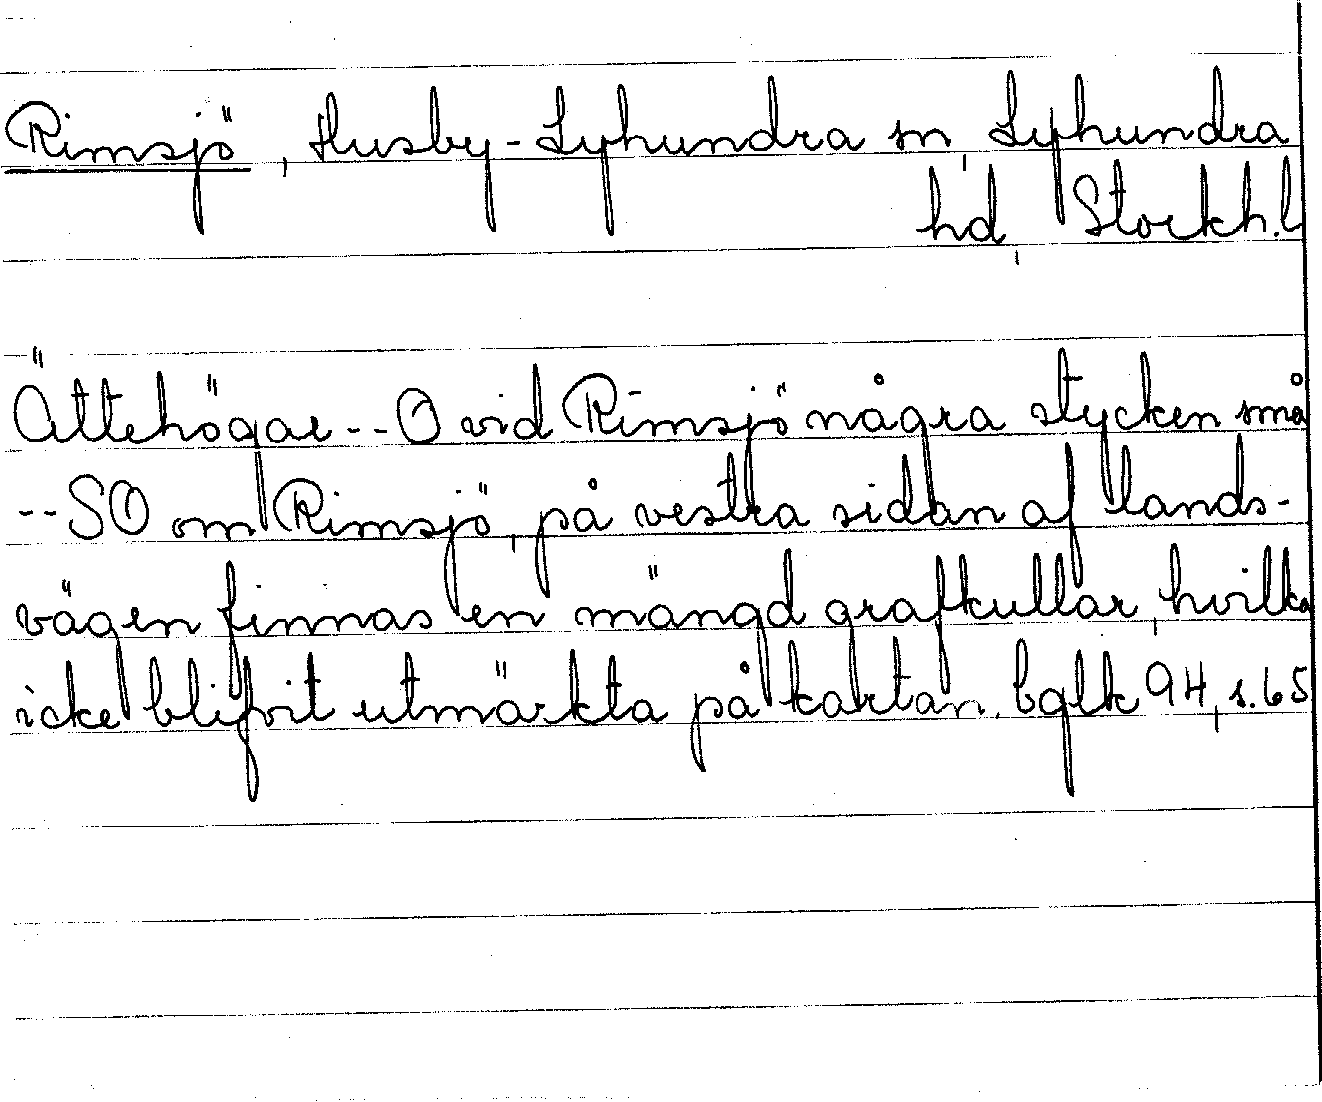 Rimsjö, Husby-Lyhundra sn, Lyhundra
hd, Stockh. l
Ättehögar -- O vid Rimsjö några stycken små
-- SO om Rimsjö, på vestra sidan af lands-
vägen finnas en mängd grafkullar, hvilka
icke blifvit utmärkta på kartan. bglk 94, s. 65